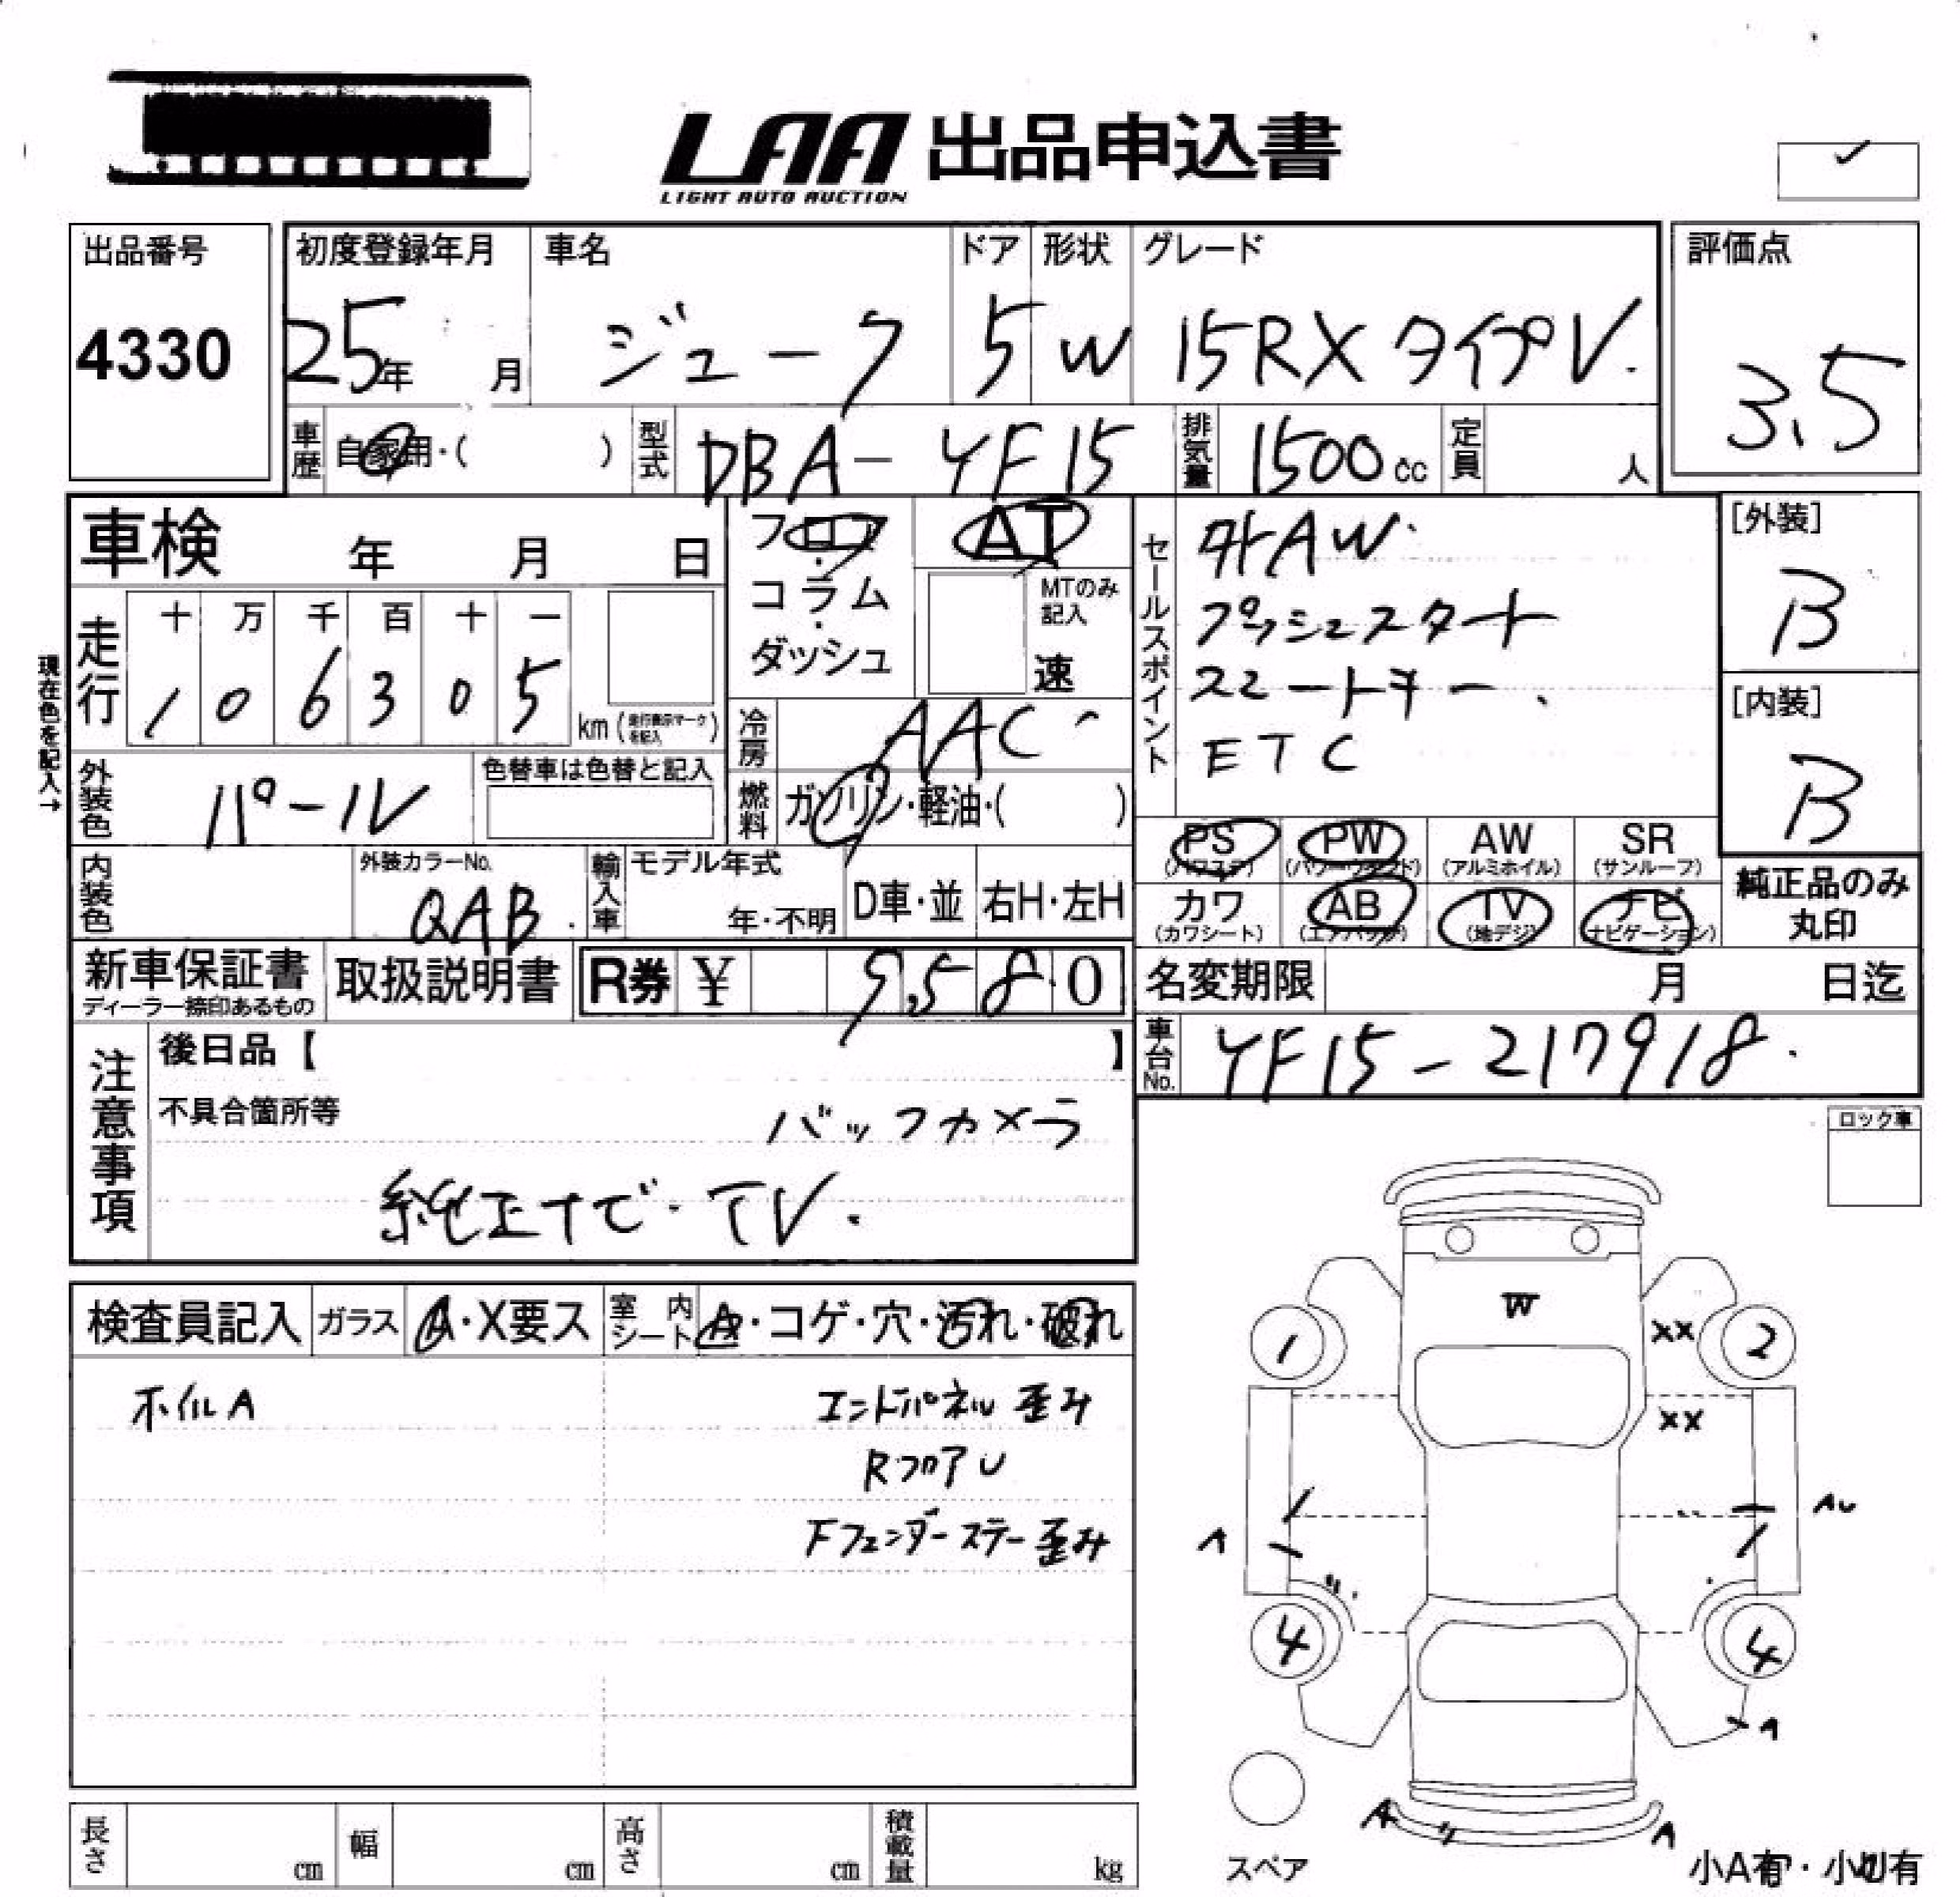 LAA 出品申込書
LIGHT AUTO AUCTION
出品番号
4330
初度登録年月
25年 月
車名
ジューク
ドア
5
形状
W
グレード
15RX タイプV.
評価点
3.5
車歴
自家用・( )
型式
DBA-YF15
排気量
1500cc
定員
人
車検 年 月 日
フロア・コラム・ダッシュ
AT
MTのみ記入
速
セールスポイント
外AW.
プッシュスタート
スマートキー.
ETC
[外装]
B
[内装]
B
現在色を記入→
走行
十 万 千 百 十 一
1 0 6 3 0 5
km (走行表示マークを記入)
冷房
AAC
外装色
パール
色替車は色替と記入
燃料
ガソリン・軽油・( )
PS
(パワステ)
PW
(パワーウインド)
AW
(アルミホイル)
SR
(サンルーフ)
カワ
(カワシート)
AB
(エアバッグ)
TV
(地デジ)
ナビ
(ナビゲーション)
純正品のみ丸印
内装色
外装カラーNo.
QAB.
輸入車
モデル年式
年・不明
D車・並
右H・左H
新車保証書
ディーラー捺印あるもの
取扱説明書
R券 ¥ 9,580
名変期限 月 日迄
車台No.
YF15-217918.
注意事項
後日品【 】
不具合箇所等
バックカメラ
純正ナビ・TV.
ロック車
検査員記入
ガラス
A・X要ス
室内シート
A・コゲ・穴・汚れ・破れ
ホイルA
エンドパネル 歪み
RフロアU
Fフェンダーステー歪み
W
XX
1
2
XX
A
AU
4
4
A
A
A
スペア
小A有・小U有
長さ cm
幅 cm
高さ cm
積載量 kg